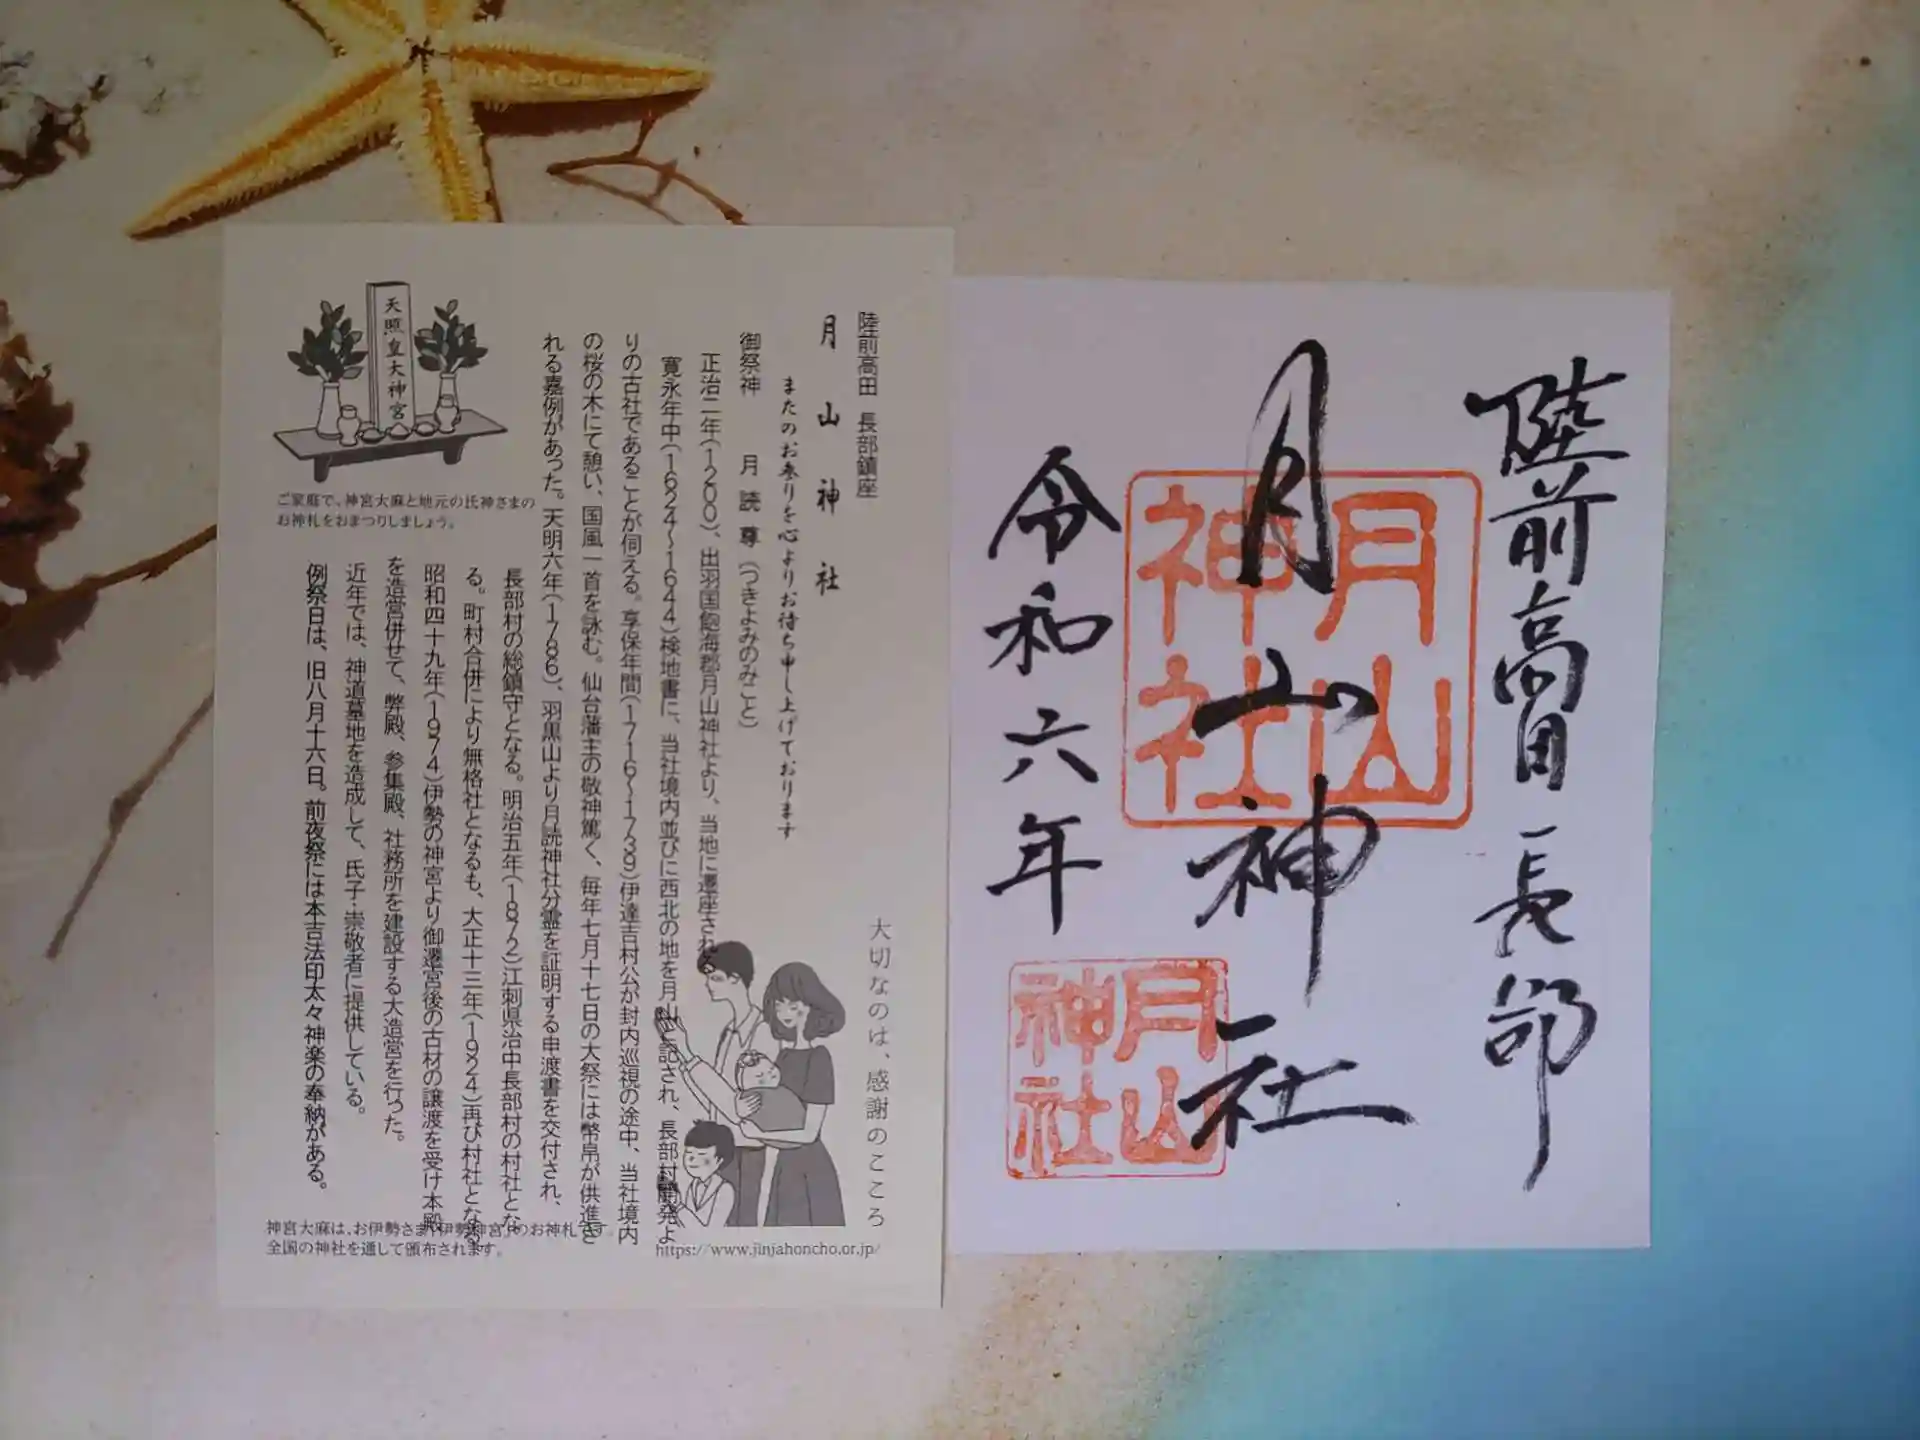 陸前高田 長部鎮座
月山神社
またのお参りを心よりお待ち申し上げております
御祭神 月読尊(つきよみのみこと)
正治二年(1200)、出羽国飽海郡月山神社より、当地に遷座される。
寛永年中(1624~1644)検地書に、当社境内並びに西北の地を月山と記され、長部村開発よ
りの古社であることが伺える。享保年間(1716~1739)伊達吉村公が封内巡視の途中、当社境内
の桜の木にて憩い、国風一首を詠む。仙台藩主の敬神篤く、毎年七月十七日の大祭には幣帛が供進さ
れる嘉例があった。天明六年(1786)、羽黒山より月読神社分霊を証明する申渡書を交付され、
長部村の総鎮守となる。明治五年(1872)江刺県治中長部村の村社とな
る。町村合併により無格社となるも、大正十三年(1924)再び村社となる。
昭和四十九年(1974)伊勢の神宮より御遷宮後の古材の譲渡を受け本殿
を造営併せて、弊殿、参集殿、社務所を建設する大造営を行った。
近年では、神道墓地を造成して、氏子・崇敬者に提供している。
例祭日は、旧八月十六日。前夜祭には本吉法印太々神楽の奉納がある。
天照皇大神宮
ご家庭で、神宮大麻と地元の氏神さまの
お神札をおまつりしましょう。
大切なのは、感謝のこころ
神宮大麻は、お伊勢さま「伊勢神宮」のお神札です。
全国の神社を通して頒布されます。
https://www.jinjahoncho.or.jp/
陸前高田 長部
月山神社
令和六年
月山
神社
月山
神社